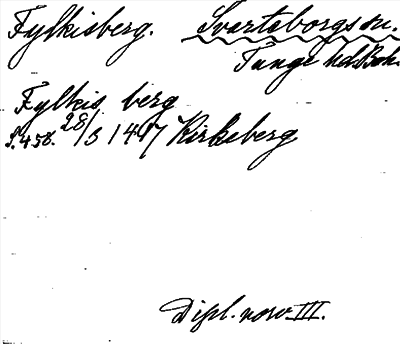 Fylkisberg. Svarteborgs sn.
Tunge hd. Boh.
Fylkis berg
S. 458. 28/3 1417 Kirkeberg
Dipl. norv III.